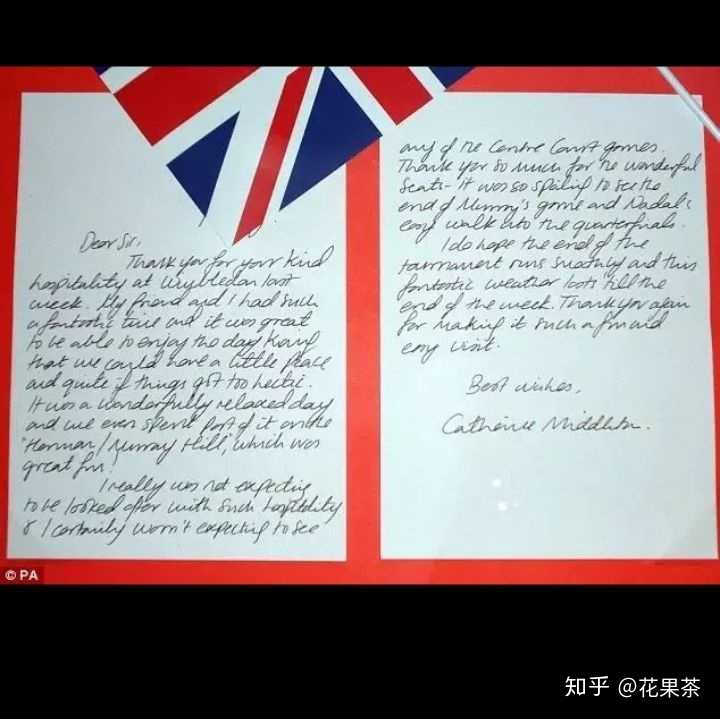 Dear Sir,
Thank you for your kind
hospitality at Wimbledon last
week. My friend and I had such
a fantastic time and it was great
to be able to enjoy the day knowing
that we could have a little peace
and quite if things got too hectic.
It was a wonderfully relaxed day
and we even spent part of it on the
"Henman / Murray Hill", which was
great fun!
I really was not expecting
to be looked after with such hospitality
& I certainly wasn't expecting to see
any of the Centre Court games.
Thank you so much for the wonderful
seats - it was so to see the
end of Murray's game and Nadal's
easy walk into the quarterfinals.
I do hope the end of the
tournament runs smoothly and this
fantastic weather lasts till the
end of the week. Thank you again
for making it such a fun and
easy visit.
Best wishes,
Catherine Middleton.
© PA
知乎 @花果茶